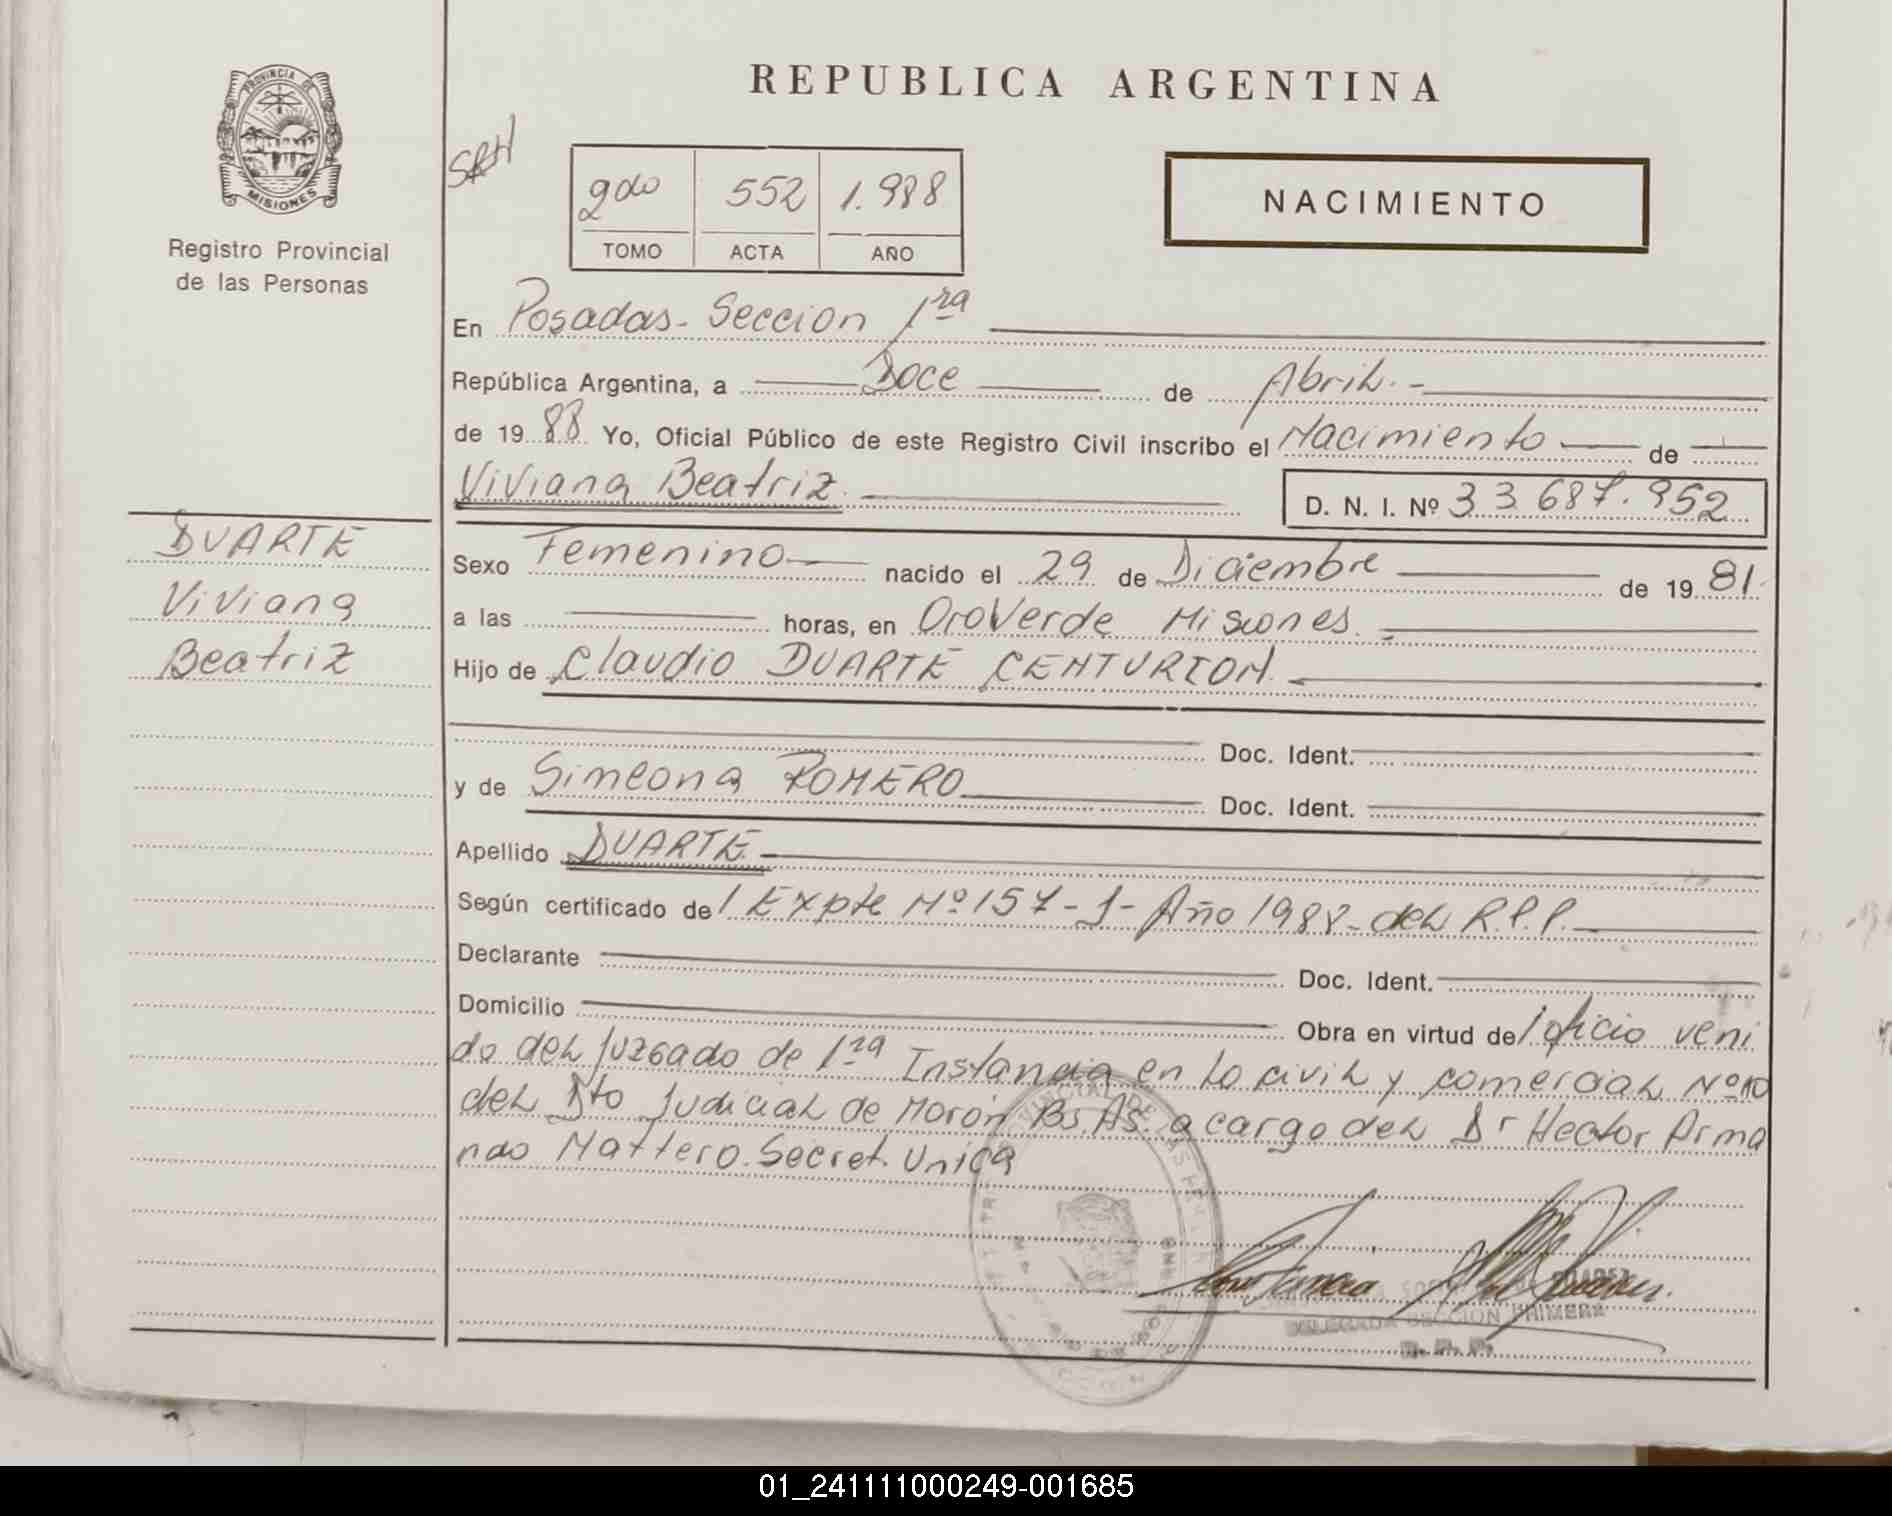 REPUBLICA ARGENTINA
PROVINCIA DE
MISIONES
Registro Provincial
de las Personas
SRH
2do 552 1.988
TOMO ACTA AÑO
NACIMIENTO
En Posadas - Seccion 1ra
República Argentina, a Doce de Abril.-
de 19 88 Yo, Oficial Público de este Registro Civil inscribo el Nacimiento de
Viviana Beatriz. D. N. I. Nº 33.687.952
DUARTE
Viviana
Beatriz
Sexo Femenino nacido el 29 de Diciembre de 19 81.
a las horas, en Oro Verde Misiones.
Hijo de Claudio DUARTE CENTURION.
Doc. Ident.
y de Simeona ROMERO Doc. Ident.
Apellido DUARTE.
Según certificado de 1 Expte Nº 157-J- Año 1988- del R.P.P.
Declarante Doc. Ident.
Domicilio Obra en virtud de 1 oficio veni
do del Juzgado de 1ra Instancia en lo civil y comercial Nº 10
del Dto Judicial de Moron Bs. As. a cargo del Dr Hector Arma
ndo Mattero. Secret. Unica
DELEGADA SECCION PRIMERA
R. P. P.
01_241111000249-001685